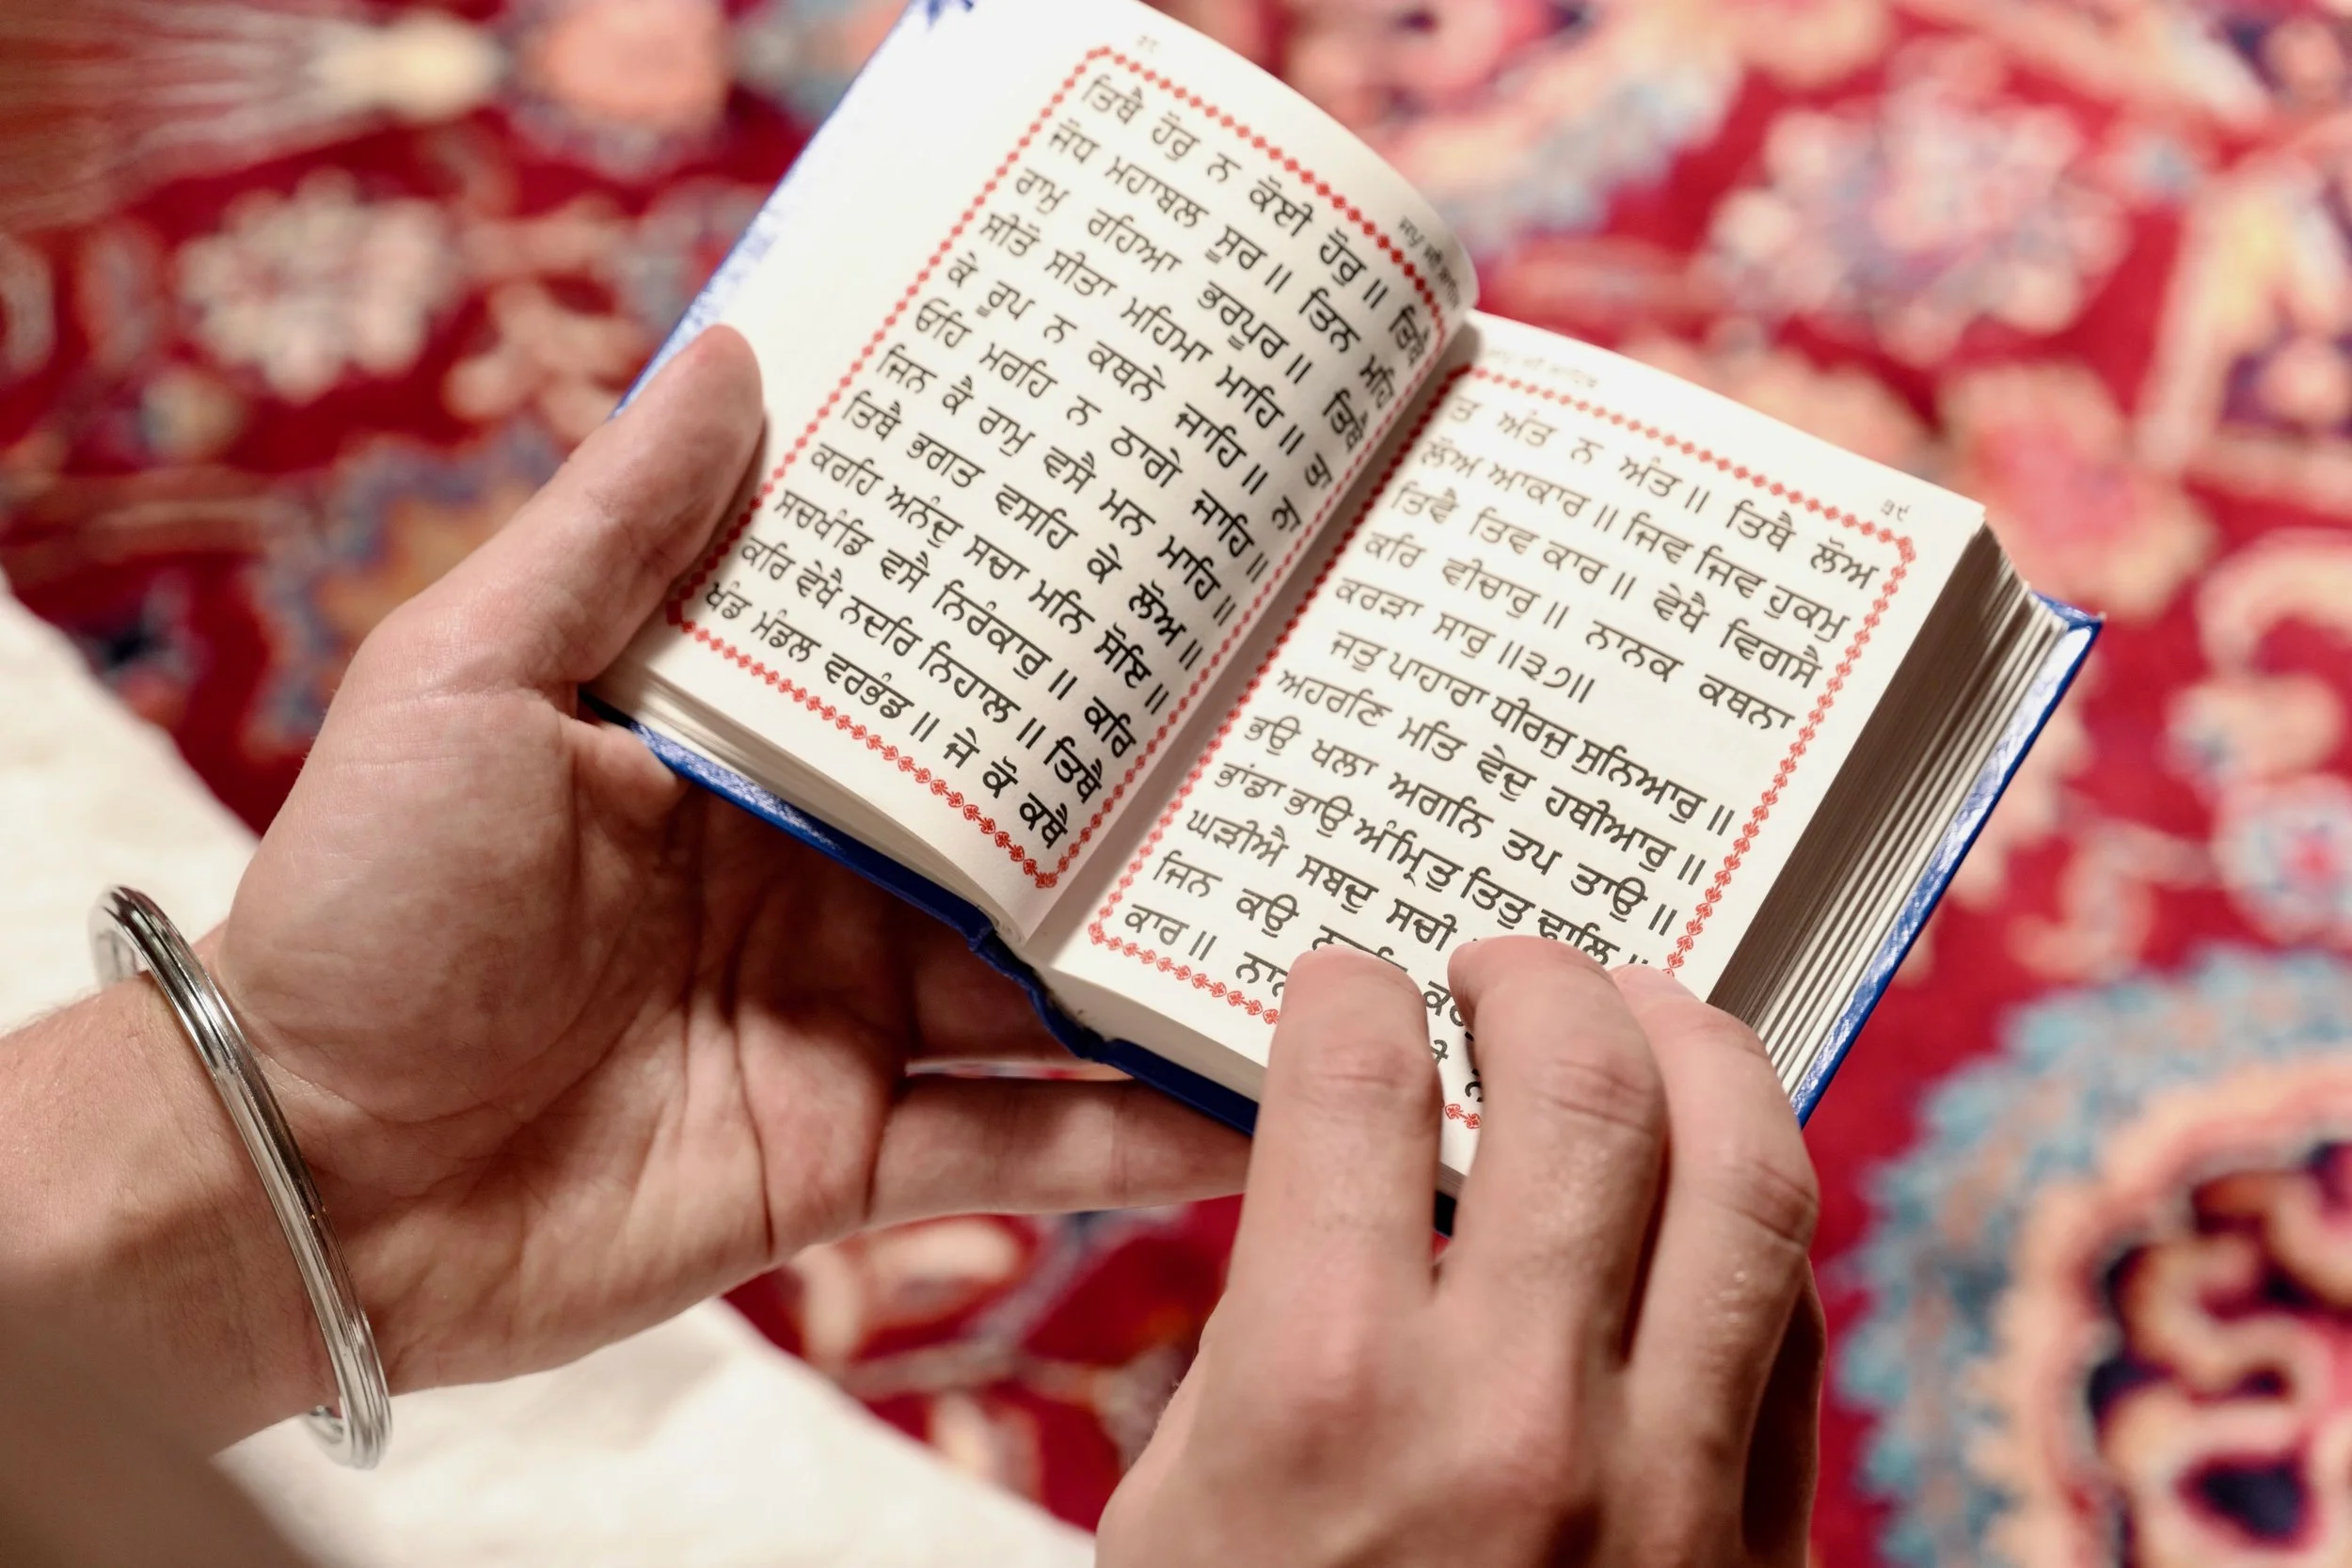 ਜਪੁ ਜੀ ਸਾਹਿਬ
ਤਿਥੈ ਹੋਰੁ ਨ ਕੋਈ ਹੋਰੁ ॥ ਤਿਥੈ
ਜੋਧ ਮਹਾਬਲ ਸੂਰ ॥ ਤਿਨ ਮਹਿ
ਰਾਮੁ ਰਹਿਆ ਭਰਪੂਰ ॥ ਤਿਥੈ
ਸੀਤੋ ਸੀਤਾ ਮਹਿਮਾ ਮਾਹਿ ॥ ਤਾ
ਕੇ ਰੂਪ ਨ ਕਥਨੇ ਜਾਹਿ ॥ ਨਾ
ਓਹਿ ਮਰਹਿ ਨ ਠਾਗੇ ਜਾਹਿ ॥
ਜਿਨ ਕੈ ਰਾਮੁ ਵਸੈ ਮਨ ਮਾਹਿ ॥
ਤਿਥੈ ਭਗਤ ਵਸਹਿ ਕੇ ਲੋਅ ॥
ਕਰਹਿ ਅਨੰਦੁ ਸਚਾ ਮਨਿ ਸੋਇ ॥
ਸਚਖੰਡਿ ਵਸੈ ਨਿਰੰਕਾਰੁ ॥ ਕਰਿ
ਕਰਿ ਵੇਖੈ ਨਦਰਿ ਨਿਹਾਲ ॥ ਤਿਥੈ
ਖੰਡ ਮੰਡਲ ਵਰਭੰਡ ॥ ਜੇ ਕੋ ਕਥੈ
ਜਪੁ ਜੀ ਸਾਹਿਬ ੩੯
ਤ ਅੰਤ ਨ ਅੰਤ ॥ ਤਿਥੈ ਲੋਅ
ਲੋਅ ਆਕਾਰ ॥ ਜਿਵ ਜਿਵ ਹੁਕਮੁ
ਤਿਵੈ ਤਿਵ ਕਾਰ ॥ ਵੇਖੈ ਵਿਗਸੈ
ਕਰਿ ਵੀਚਾਰੁ ॥ ਨਾਨਕ ਕਥਨਾ
ਕਰੜਾ ਸਾਰੁ ॥੩੭॥
ਜਤੁ ਪਾਹਾਰਾ ਧੀਰਜੁ ਸੁਨਿਆਰੁ ॥
ਅਹਰਣਿ ਮਤਿ ਵੇਦੁ ਹਥੀਆਰੁ ॥
ਭਉ ਖਲਾ ਅਗਨਿ ਤਪ ਤਾਉ ॥
ਭਾਂਡਾ ਭਾਉ ਅੰਮ੍ਰਿਤੁ ਤਿਤੁ ਢਾਲਿ ॥
ਘੜੀਐ ਸਬਦੁ ਸਚੀ
ਜਿਨ ਕਉ
ਕਾਰ ॥